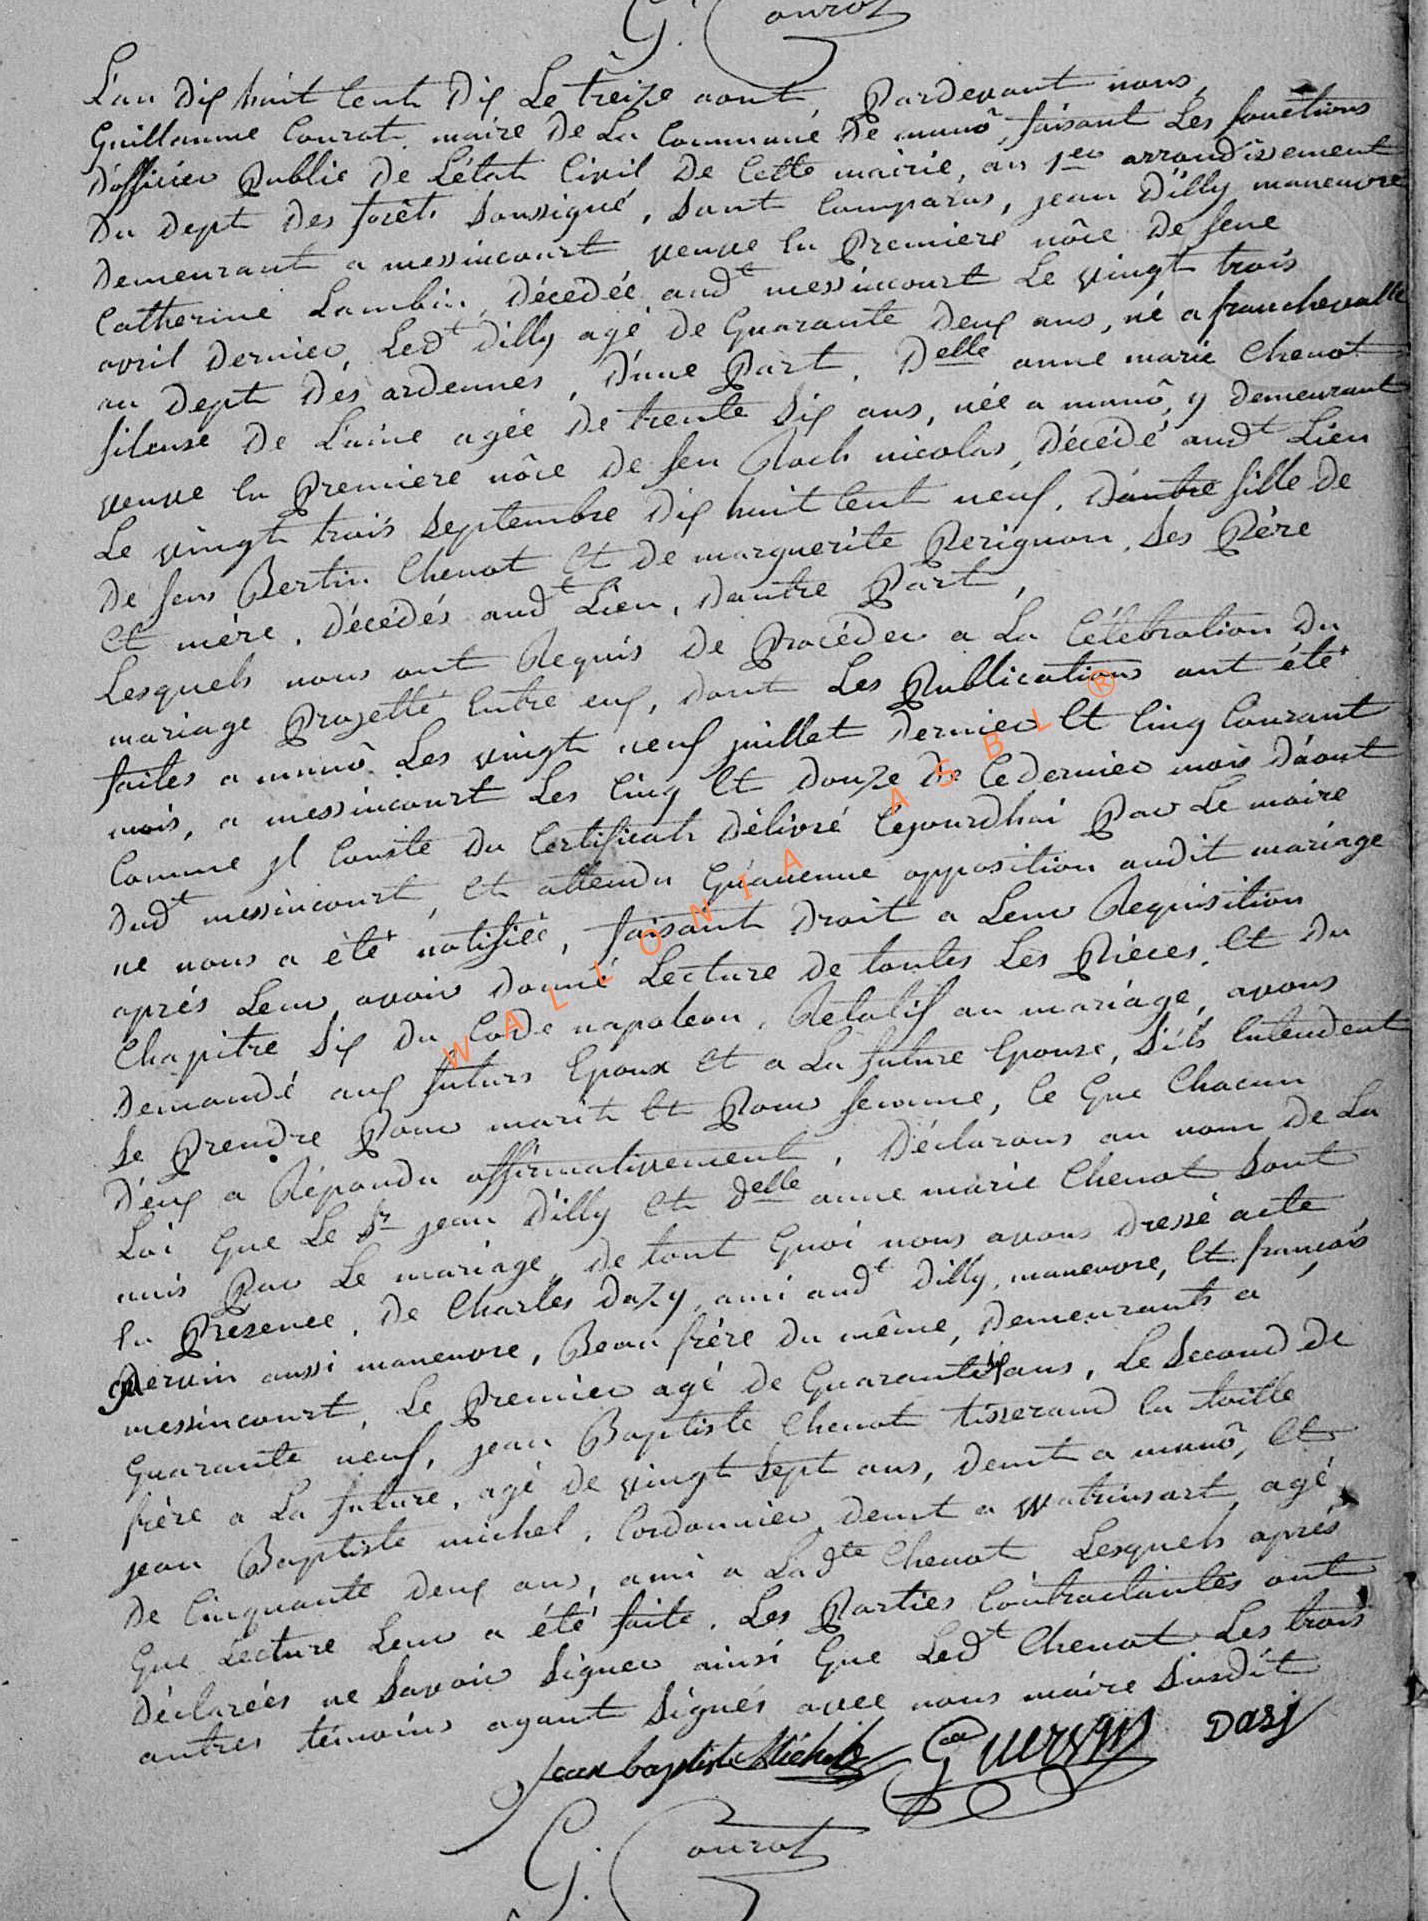 G. Courot
L'an dix huit cent dix le treize aout, Pardevant nous,
Guillaume Courot, maire de la commune de munô, faisant les fonctions
d'officier Public de L'état Civil de cette mairie, au 1er arrondissement
du dept des forêts soussigné, sont comparus, jean d'illy maneuvre
demeurant a messincourt veuve en Premiere nôce de feue
Catherine Lambin, décédée audt messincourt le vingt trois
avril dernier, Ledt dilly agé de quarante deux ans, né a francheville
au dept des ardennes, d'une Part. Delle anne marie Chenot
fileuse de Laine agée de trente six ans, née a munô, y demeurant
veuve en Premiere nôce de feu Roch nicolas, décédé audt Lieu
Le vingt trois septembre dix huit cent neuf, d'autre fille de
de feu Bertin Chenot et de marguerite Perignon, ses Père
et mère, décédés audt Lieu, dautre Part,
Lesquels nous ont Requis de Procéder a la Célébration du
mariage Projetté entre eux, dont Les Publications ont été
faites a munô Les vingt neuf juillet dernier et cinq Courant
mois, a messincourt Les cinq et douze de ce dernier mois d'aout
Comme jl Conste du Certificath délivré cejourdhui Par Le maire
dudt messincourt, et attendu qu'aucune opposition audit mariage
ne nous a été notifiée, faisant droit a Leur Requisition
aprés Leur avoir donné Lecture de toutes Les Pièces, et du
Chapitre six du Code napoleon, Relatif au mariage, avons
demandé aux futurs Epoux et a La future Epouse, s'ils entendent
se Prendre Pour marit et Pour femme, ce que Chacun
d'eux a Répondu affirmativement, déclarons au nom de La
Loi que Le Sr jean d'illy et delle anne marie Chenot sont
unis Par Le mariage, de tout quoi nous avons dressé acte
en Presence, de Charles dazy, ami audt dilly, maneuvre, et françois
Guervin aussi maneuvre, Beau frère du même, demeurants a
messincourt, Le Premier agé de quarante ans, Le second de
quarante neuf, jean Baptiste Chenot tisserand en toille
frère a La future, agé de vingt sept ans, demt a munô, et
jean Baptiste michel, Cordonnier demt a watrinsart, agé
de Cinquante deux ans, ami a Ladte Chenot Lesquels aprés
que Lecture Leur a été faite, Les Parties Contractantes ont
déclarées ne savoir signer ainsi que Ledt Chenot Les trois
autres témoins ayant signés avec nous maire susdit
Jean baptiste Michel Guervin Dasj
G. Courot
WALLONIA ASBL ®